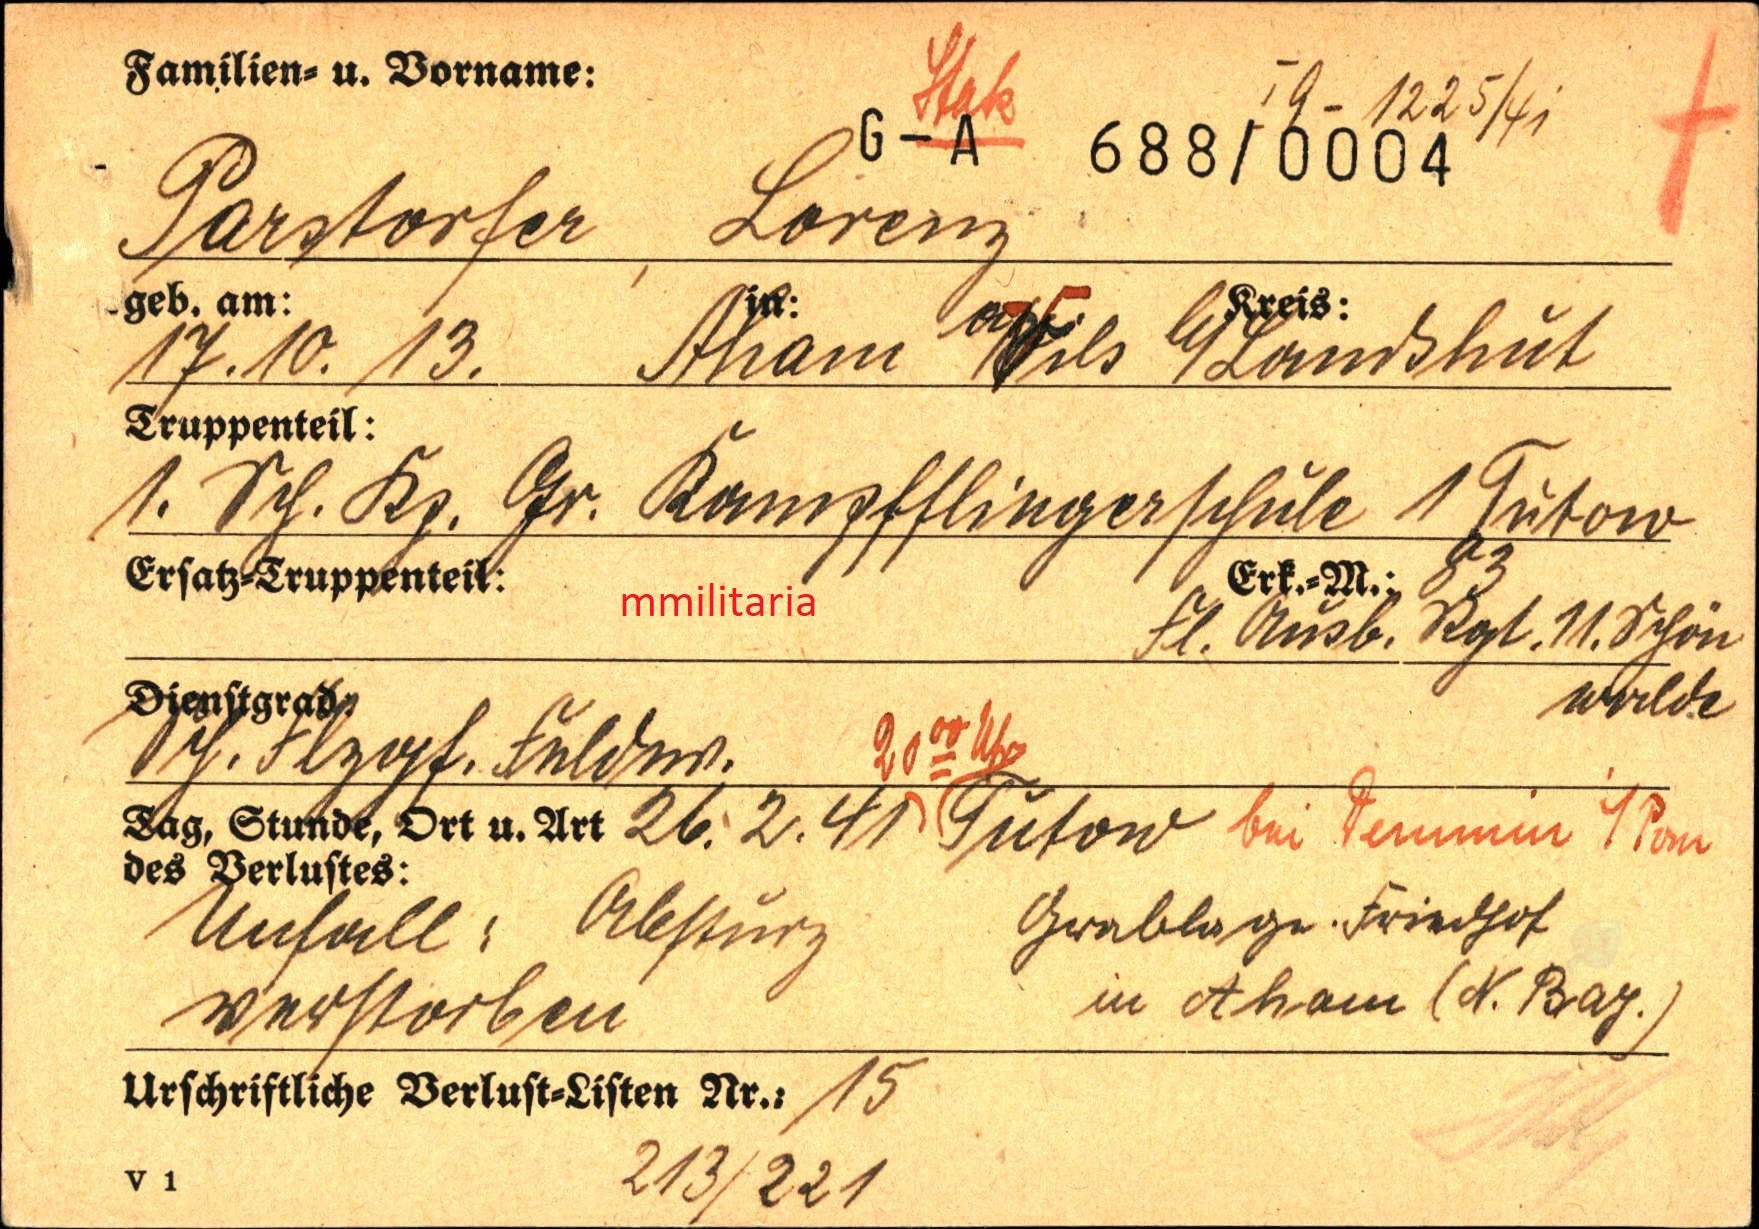 Familien- u. Vorname:
Stak
I g - 1225/41
G-A 688/0004
Parstorfer, Lorenz
geb. am: in: Kreis:
17. 10. 13. Aham a/Vils Landshut
Truppenteil:
1. Sch. Kp. Gr. Kampffliegerschule 1 Tutow
Ersatz-Truppenteil: Erk.-M.: 83
mmilitaria
Fl. Ausb. Rgt. 11. Schön
walde
Dienstgrad:
Feldw.
20 00 Uhr
Tag, Stunde, Ort u. Art 26. 2. 41 Tutow bei Demmin /Pom
des Verlustes:
Unfall: Absturz
Grablage. Friedhof
verstorben
in Aham (N. Bay.)
Urschriftliche Verlust-Listen Nr.: 15
213/221
V 1